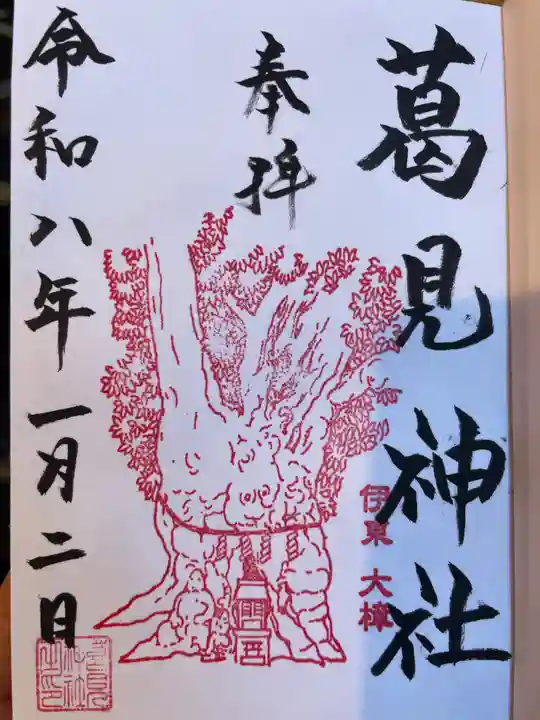 葛見神社
奉拝
伊東 大樟
令和八年一月二日